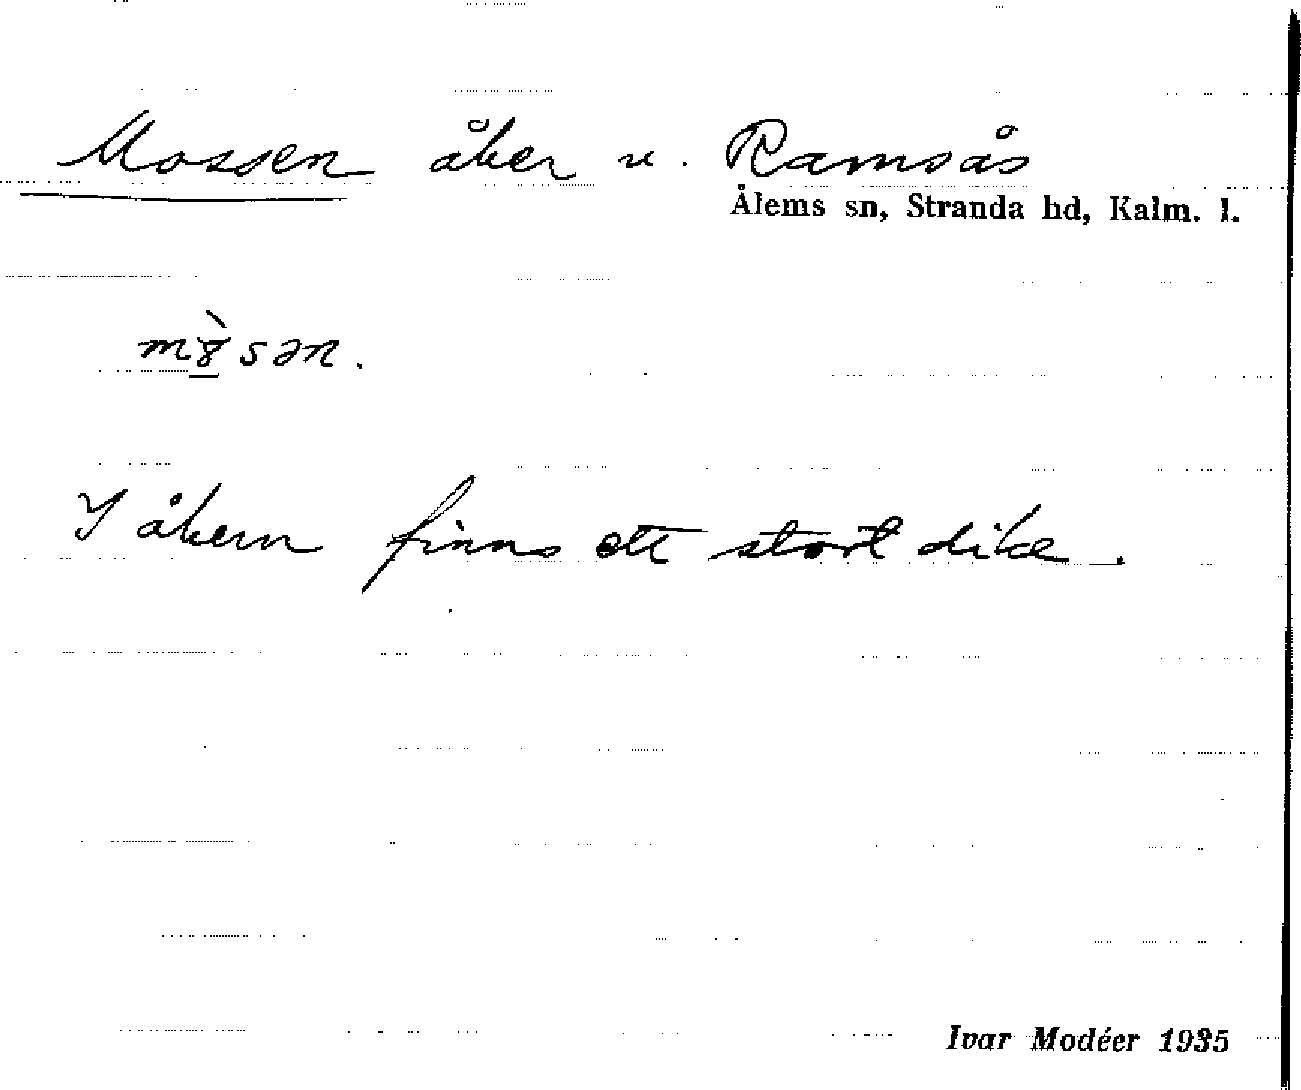 Mossen åker u. Ramsås
Ålems sn, Stranda hd, Kalm. l.
m8̱̀sən.
I åkern finns ett stort dike.
Ivar Modéer 1935